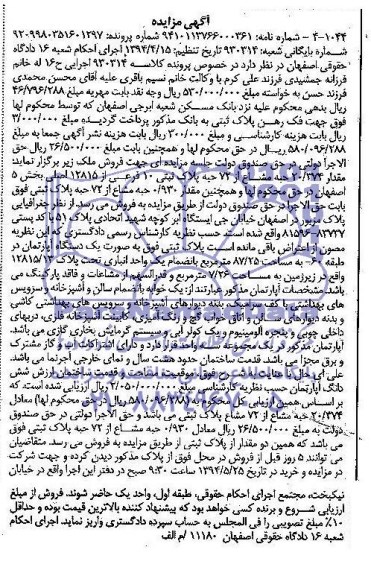 آگهی مزایده
۴-۱۰۴۴ - شماره نامه: ۹۴۱۰۱۱۳۷۶۶۰۰۰۳۶۱ شماره پرونده: ۹۲۰۹۹۸۰۳۵۱۶۰۱۲۹۷
شماره بایگانی شعبه: ۹۳۰۳۱۴ تاریخ تنظیم: ۱۳۹۴/۴/۱۵ اجرای احکام شعبه ۱۶ دادگاه
حقوقی اصفهان در نظر دارد در خصوص پرونده کلاسه ۹۳۰۳۱۴ اجرایی ح۱۶ له خانم
فرزانه جمشیدی فرزند علی کرم با وکالت خانم نسیم باقری علیه آقای محسن محمدی
فرزند حسن به خواسته مبلغ ۵۳۰/۰۰۰/۰۰۰ ریال وجه نقد بابت مهریه مبلغ ۴۶/۷۹۶/۲۸۸
ریال بدهی محکوم علیه نزد بانک مسکن شعبه ایرجی اصفهان که توسط محکوم لها
فوق جهت فک رهن پلاک ثبتی به بانک مذکور پرداخت گردیده مبلغ ۳/۰۰۰/۰۰۰
ریال بابت هزینه کارشناسی و مبلغ ۳۰۰/۰۰۰ ریال بابت هزینه نشر آگهی جمعا به مبلغ
۵۸۰/۰۹۶/۲۸۸ ریال در حق محکوم لها و همچنین بابت مبلغ ۲۶/۵۰۰/۰۰۰ ریال حق
الاجرا دولتی در حق صندوق دولت جلسه مزایده ای جهت فروش ملک زیر برگزار نماید
مقدار ۲۰/۳۷۴ مشاع از ۷۲ حبه پلاک ثبتی ۱۰ فرعی از ۱۲۸۱۵ اصلی بخش ۵
اصفهان در حق محکوم لها و همچنین مقدار ۰/۹۳۰ حبه مشاع از ۷۲ حبه پلاک ثبتی فوق
بابت حق الاجرا در حق صندوق دولت از طریق مزایده به فروش می رسد. از نظر جغرافیایی
پلاک مزبور در اصفهان خیابان جی ایستگاه ابر کوچه شهید اتحادی پلاک ۵۱ با کد پستی
واقع شده است حسب نظریه کارشناس رسمی دادگستری که این نظریه
مصون از اعتراض باقی مانده است پلاک ثبتی فوق به صورت یک دستگاه آپارتمان در
طبقه به مساحت ۸۷/۲۵ مترمربع بانضمام یک واحد انباری تحت پلاک
واقع در زیرزمین به مساحت ۷/۲۶ مترمربع و قدرالسهم از مشاعات و فاقد پارکینگ می
باشد مشخصات آپارتمان مذکور عبارتند از: یک خوابه بانضمام سالن و آشپزخانه و سرویس
های بهداشتی با کف سرامیک، بدنه دیوارهای آشپزخانه و سرویس های بهداشتی کاشی
و بدنه دیوارهای سالن و اتاق خواب گچ و رنگ آمیزی کابینت آشپزخانه فلزی، دربهای
داخلی چوبی و پنجره آلومینیوم و یک کولر آبی و سیستم گرمایش بخاری گازی می باشد.
آپارتمان مذکور در یک مجموعه واحد قرار دارد و دارای اشتراکات آب و گاز مشترک
و برق مجزا می باشد. قدمت ساختمان حدود هشت سال و نمای خارجی آجرنما می باشد.
علی ایحال با عنایت به شرح فوق، موقعیت، مساحت و قدمت ساختمان ارزش شش
دانگ آپارتمان حسب نظریه کارشناسی مبلغ ۲/۰۵۰/۰۰۰/۰۰۰ ریال ارزیابی شده است. که
بر اساس همین ارزیابی کل محکوم به ۵۸۰/۰۹۶/۲۸۸ ریال (در حق محکوم لها) معادل
۲۰/۳۷۴ حبه مشاع از ۷۲ مشاع پلاک ثبتی می باشد و حق الاجرا دولتی در حق صندوق
دولت به مبلغ ۲۶/۵۰۰/۰۰۰ ریال معادل ۰/۹۳۰ حبه مشاع از ۷۲ حبه پلاک ثبتی فوق
می باشد که همین دو مقدار از پلاک ثبتی از طریق مزایده به فروش می رسد. متقاضیان
می توانند ۵ روز قبل از فروش در محل فوق از پلاک مذکور دیدن کرده و جهت شرکت
در مزایده و خرید در تاریخ ۱۳۹۴/۵/۲۵ ساعت ۹:۳۰ صبح در دفتر این اجرا واقع در خیابان
نیکبخت، مجتمع اجرای احکام حقوقی، طبقه اول، واحد یک حاضر شوند. فروش از مبلغ
ارزیابی شروع و برنده کسی خواهد بود که پیشنهاد کننده بالاترین قیمت بوده و حداقل
۱۰٪ مبلغ تصویبی را فی المجلس به حساب سپرده دادگستری واریز نماید. اجرای احکام
شعبه ۱۶ دادگاه حقوقی اصفهان ۱۱۱۸۰ / م الف